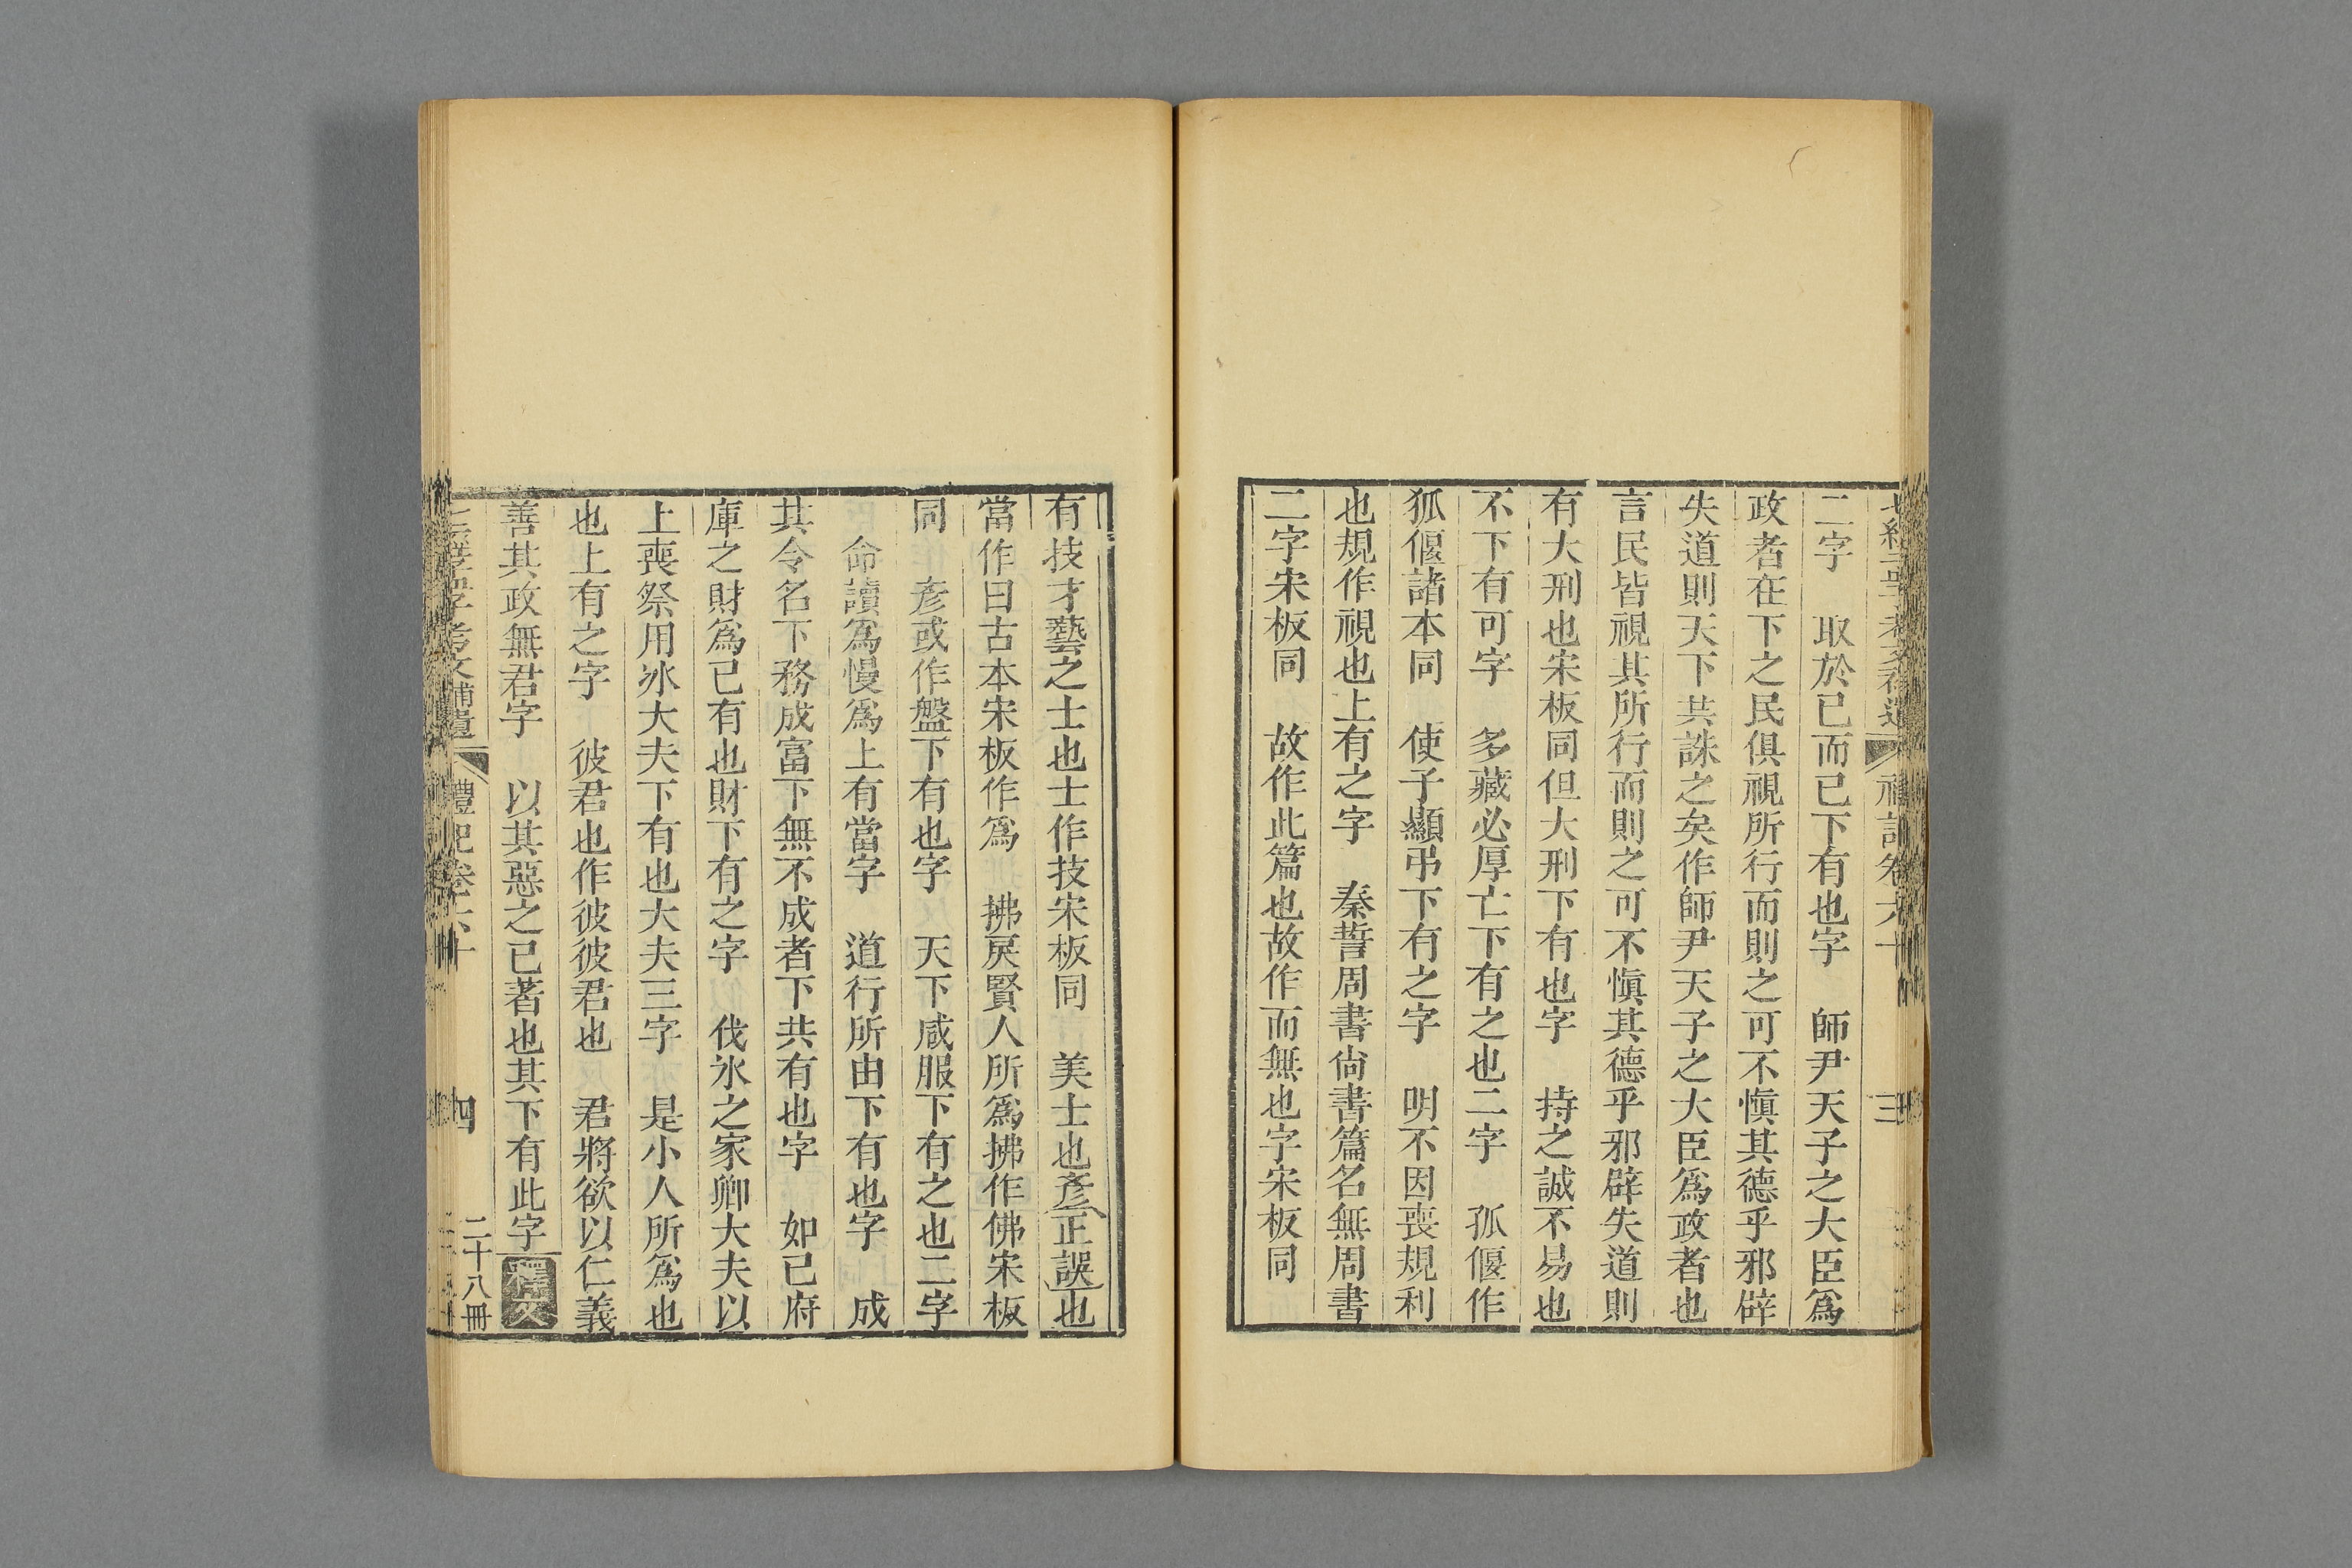 二字　取於已而已下有也字　師尹天子之大臣爲
政者在下之民俱視所行而則之可不愼其德乎邪辟
失道則天下共誅之矣作師尹天子之大臣爲政者也
言民皆視其所行而則之可不愼其德乎邪辟失道則
有大刑也宋板同但大刑下有也字　持之誠不易也
不下有可字　多藏必厚亡下有之也二字　孤偃作
狐偃諸本同　使子顯弔下有之字　明不因喪規利
也規作視也上有之字　秦誓周書尙書篇名無周書
二字宋板同　故作此篇也故作而無也字宋板同
有技才藝之士也士作技宋板同　美士也彥正誤也
當作曰古本宋板作爲　拂戾賢人所爲拂作佛宋板
同　彥或作盤下有也字　天下咸服下有之也二字
命讀爲慢爲上有當字　道行所由下有也字　成
其令名下務成富下無不成者下共有也字　如己府
庫之財爲己有也財下有之字　伐氷之家卿大夫以
上喪祭用氷大夫下有也大夫三字　是小人所爲也
也上有之字　彼君也作彼彼君也　君將欲以仁義
善其政無君字　以其惡之已著也其下有此字 釋文
禮記卷六十　四
二十八冊